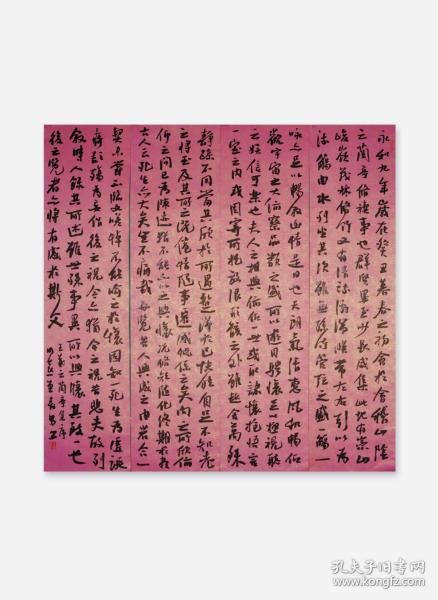 永和九年歲在癸丑暮春之初會於會稽山陰
之蘭亭脩禊事也群賢畢至少長咸集此地有崇山
峻嶺茂林脩竹又有清流激湍暎帶左右引以為
流觴曲水列坐其次雖無絲竹管弦之盛一觴一
詠亦足以暢敘幽情是日也天朗氣清惠風和暢仰
觀宇宙之大俯察品類之盛所以遊目騁懷足以極視聽
之娛信可樂也夫人之相與俯仰一世或取諸懷抱悟言
一室之內或因寄所托放浪形骸之外雖趣舍萬殊
靜躁不同當其欣於所遇暫得於己快然自足不知老
之將至及其所之既倦情隨事遷感慨係之矣向之所欣俯
仰之間已為陳迹猶不能不以之興懷況脩短隨化終期於盡
古人云死生亦大矣豈不痛哉每覽昔人興感之由若合一
契未嘗不臨文嗟悼不能喻之於懷固知一死生為虛誕
齊彭殤為妄作後之視今亦猶今之視昔悲夫故列
敘時人錄其所述雖世殊事異所以興懷其致一也
後之覽者亦將有感於斯文
王羲之蘭亭集序
孔夫子旧书网